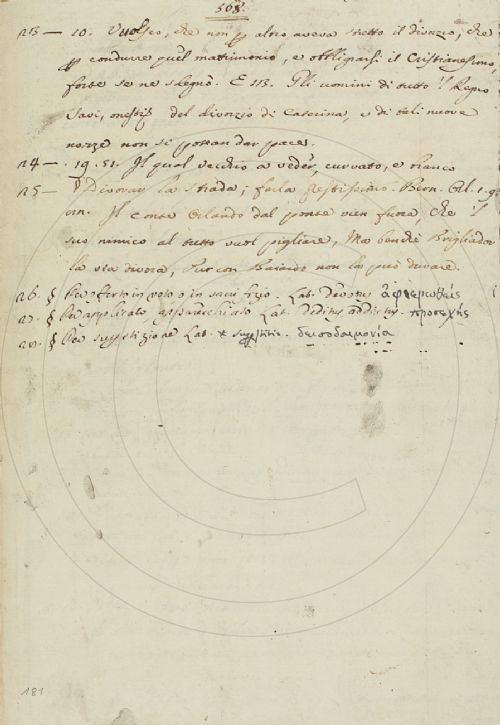 568.
23 — 10. Vuolseo, che non p altro aveva stretto il divorzio, che
p condurre quel matrimonio, e obbligarsi il Cristianesimo,
forte se ne sdegnò. E 113. Gli uomini di tutto 'l Regno
savi, onestiss del divorzio di Caterina, e di tali nuove
nozze non si potean dar pace.
24 — . 19. 51. Il qual vecchio a veder, curvato, e bianco
25 — § Divorar la strada; farla prestissimo. Bern. Orl. 1. 9
Il conte Orlando dal ponte vien fuora, che 'l
suo nimico al tutto vuol pigliare, Ma benchè Brigliador
la via divora, Pur con Baiardo non la può durare.
26. § Per offerto in voto o in sacrifizio. Lat. Devotus
27. § Per applicato, apparecchiato Lat. Deditus, addictus. προσεχής
28. § Per superstizione Lat. superstitio. δεισιδαιμονία
181